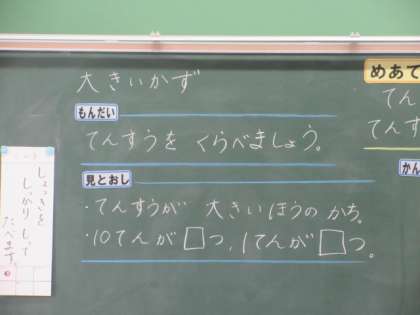 大きいかず
もんだい
てんすうを くらべましょう。
見とおし
・てんすうが 大きいほうの かち。
・10てんが□つ、1てんが□つ。
めあて
てん
てんす
かん
しっかり
たべます